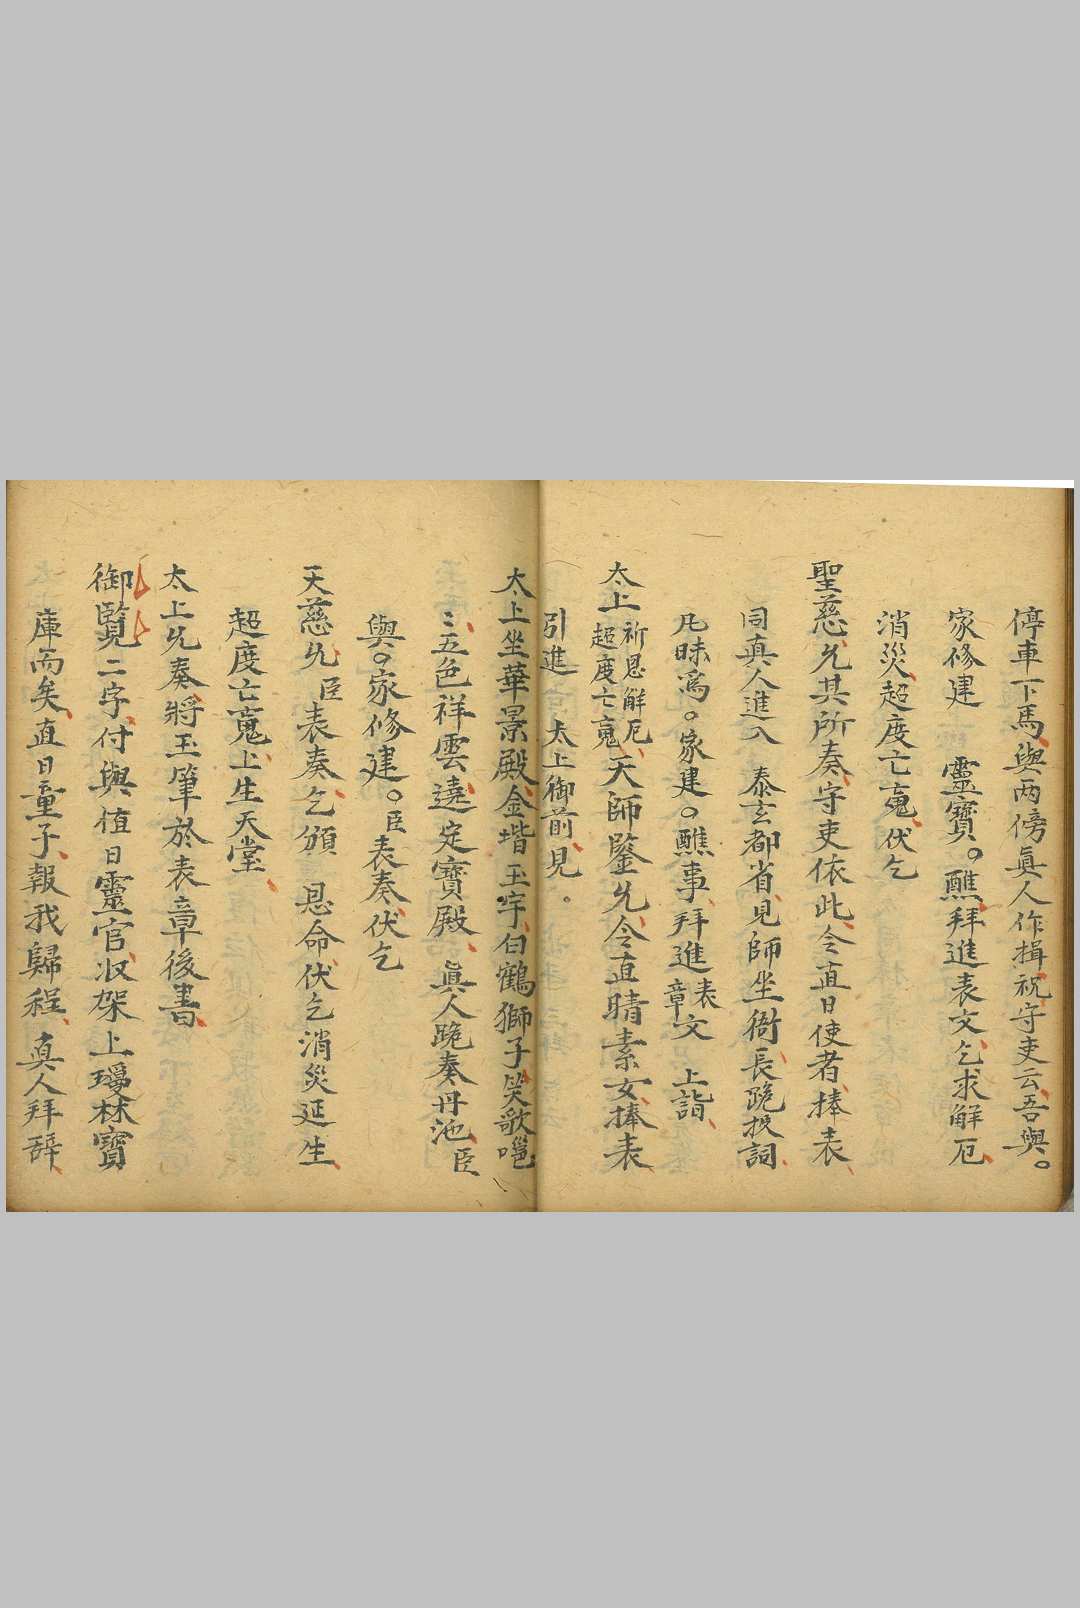 停車下馬與两傍眞人作揖祝守吏云吾與○
家修建　靈寶○醮拜進表文乞求解厄
消災超度亡䰟伏乞
聖慈允其所奏守吏依此令直日使者捧表
同眞人進入　泰玄都省見師坐衙長跪投詞
凡昧爲○家建○醮事拜進表章文　上詣
太上祈恩解厄超度亡䰟天師鑒允令直睛素女捧表
引進　太上御前見
太上坐華景殿金堦玉宇白鶴獅子笑歌嗈
〻五色祥雲遶定寶殿　眞人跪奏丹池臣
與○家修建○臣表奏伏乞
天慈允臣表奏乞頒　恩命伏乞消災延生
超度亡䰟上生天堂
太上允奏將玉筆於表章後書
御覧二字付與值日靈官収架上璚林寳
庫而矣直日童子報我歸程眞人拜辞